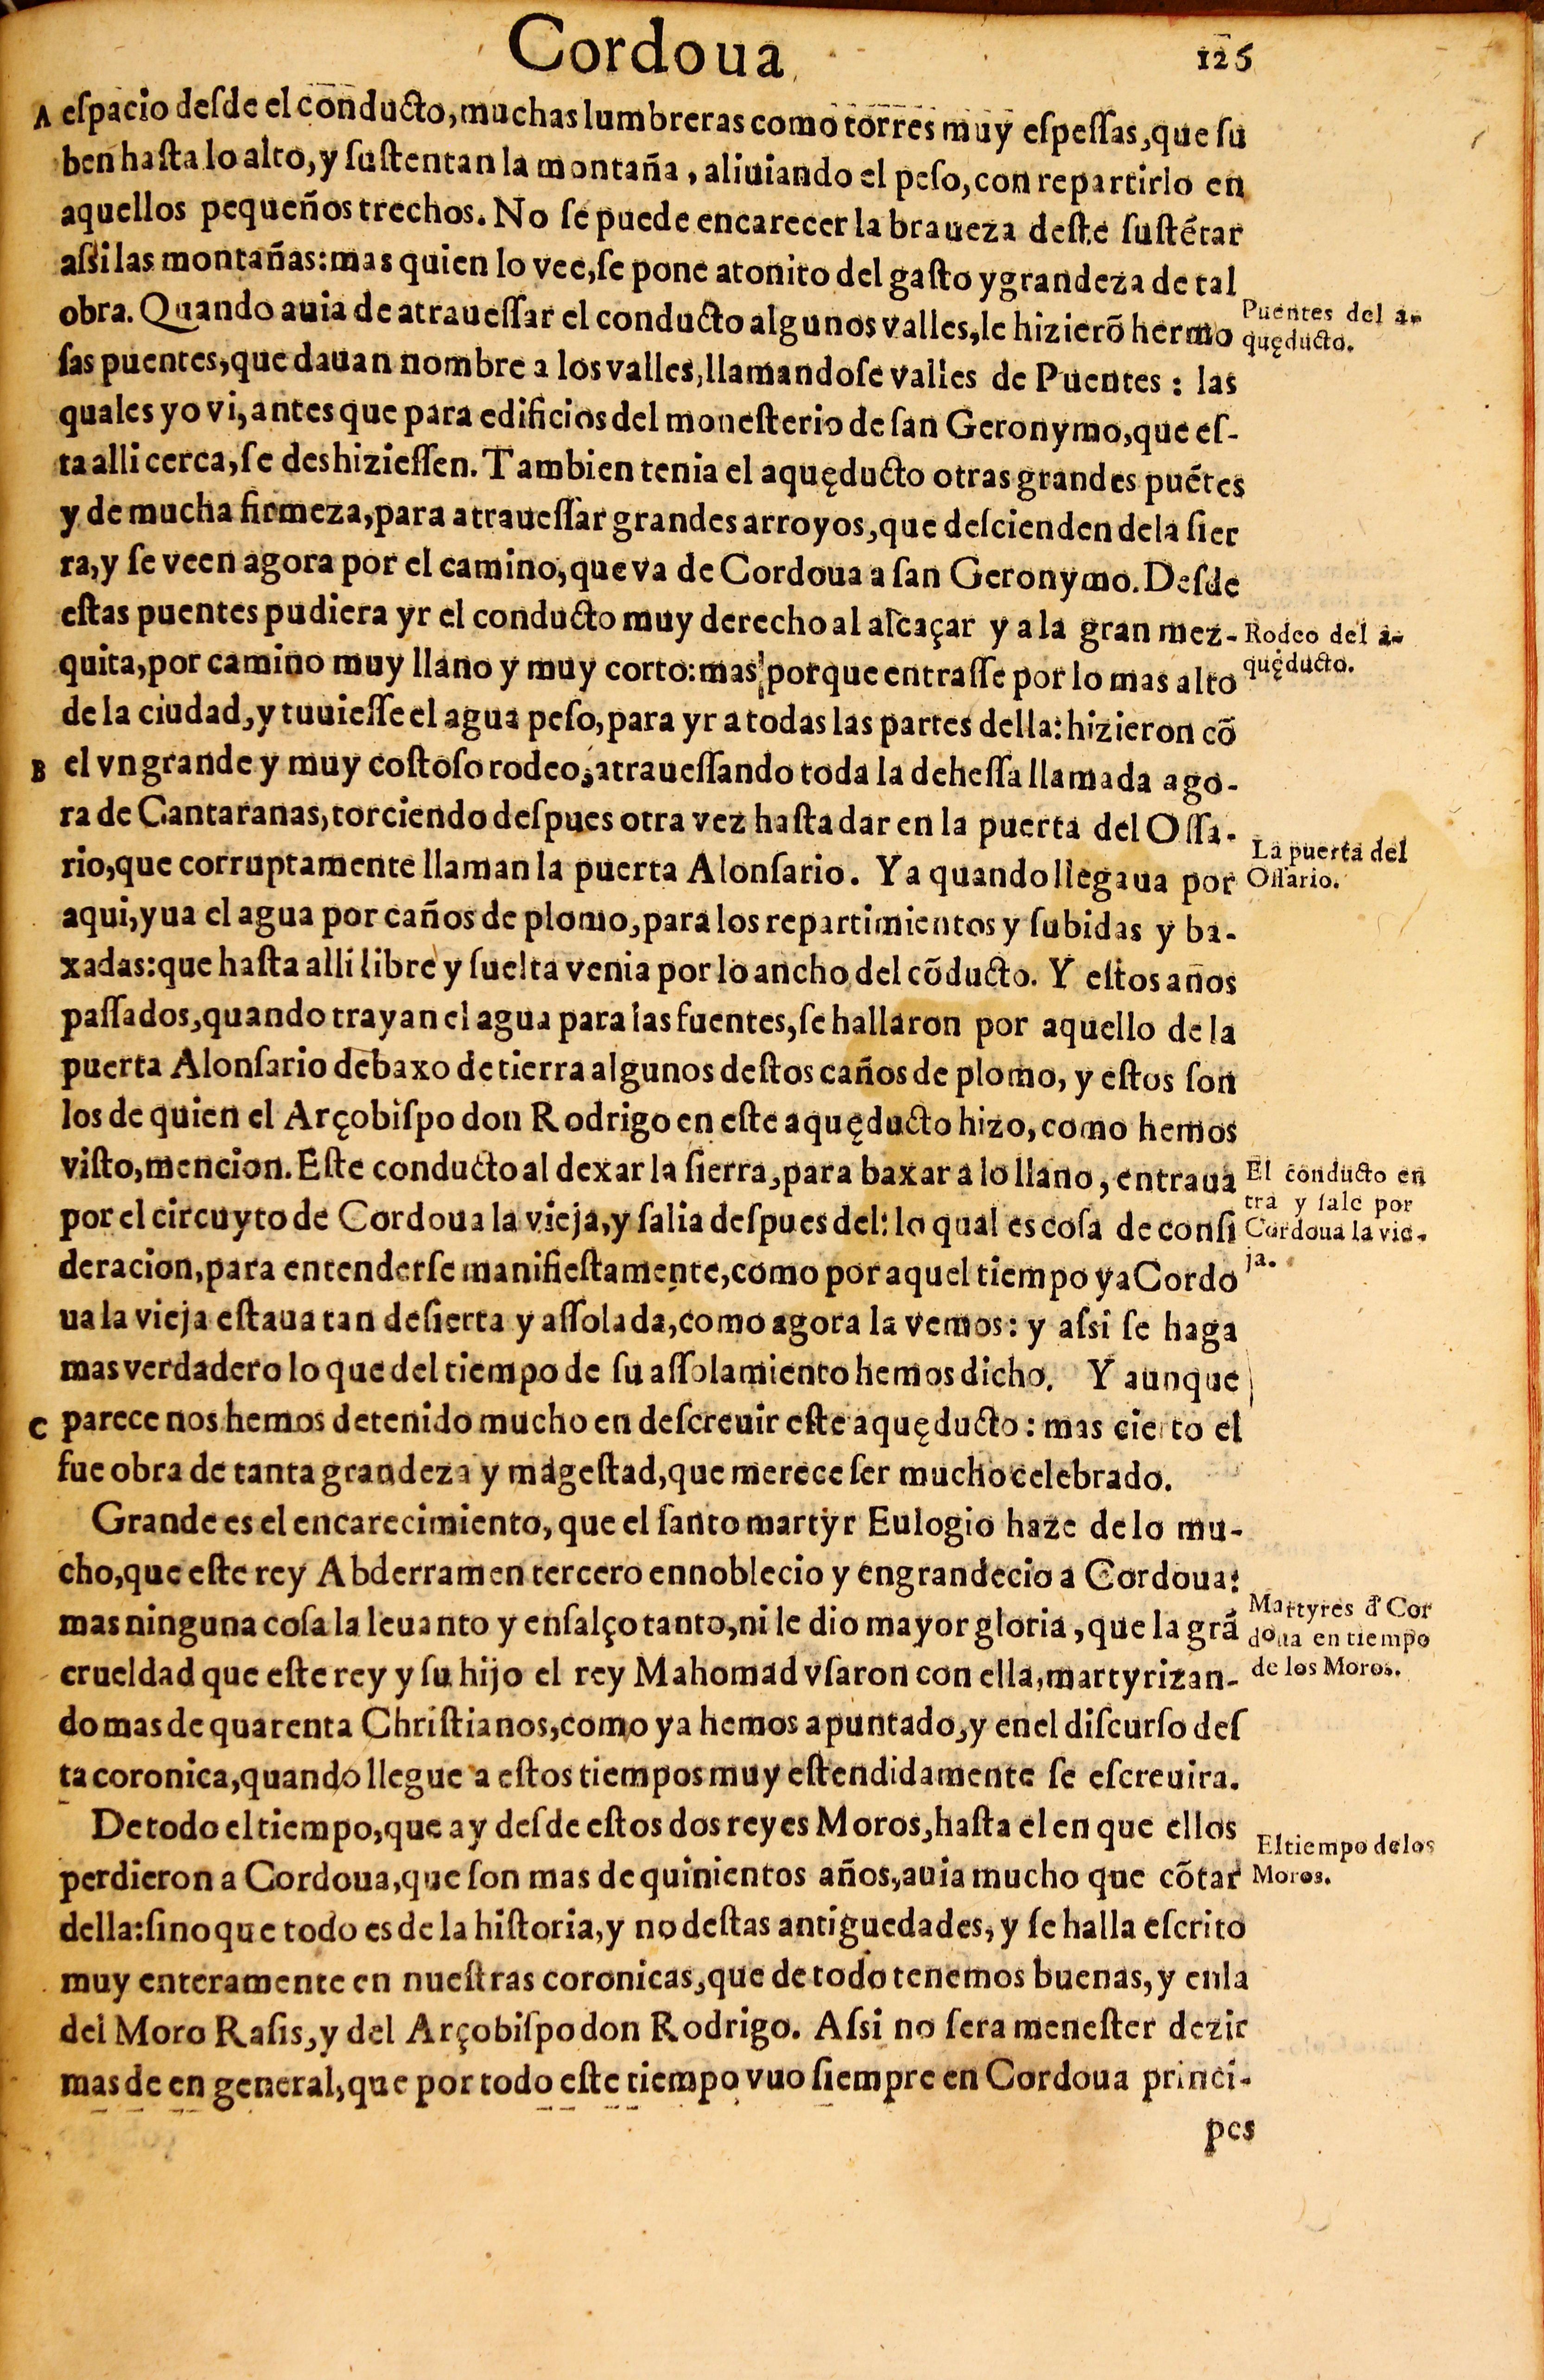 Cordoua
125
A espacio desde el conducto, muchas lumbreras como torres muy espessas, que su
ben hasta lo alto, y sustentan la montaña, aliuiando el peso, con repartirlo en
aquellos pequeños trechos. No se puede encarecer la braueza deste sustẽtar
assi las montañas: mas quien lo vee, se pone atonito del gasto y grandeza de tal
obra. Quando auia de atrauessar el conducto algunos valles, le hizierõ hermo
sas puentes, que dauan nombre a los valles, llamandose valles de Puentes: las
quales yo vi, antes que para edificios del monesterio de san Geronymo, que es-
ta alli cerca, se deshiziessen. Tambien tenia el aquęducto otras grandes puẽtes
y de mucha firmeza, para atrauessar grandes arroyos, que descienden dela sier
ra, y se veen agora por el camino, que va de Cordoua a san Geronymo. Desde
estas puentes pudiera yr el conducto muy derecho al alcaçar y a la gran mez-
quita, por camino muy llano y muy corto: mas porque entrasse por lo mas alto
de la ciudad, y tuuiesse el agua peso, para yr a todas las partes della: hizieron cõ
B el vn grande y muy costoso rodeo, atrauessando toda la dehessa llamada ago-
ra de Cantaranas, torciendo despues otra vez hasta dar en la puerta del Ossa-
rio, que corruptamente llaman la puerta Alonsario. Ya quando llegaua por
aqui, yua el agua por caños de plomo, para los repartimientos y subidas y ba-
xadas: que hasta alli libre y suelta venia por lo ancho del cõducto. Y estos años
passados, quando trayan el agua para las fuentes, se hallaron por aquello de la
puerta Alonsario debaxo de tierra algunos destos caños de plomo, y estos son
los de quien el Arçobispo don Rodrigo en este aquęducto hizo, como hemos
visto, mencion. Este conducto al dexar la sierra, para baxar a lo llano, entraua
por el circuyto de Cordoua la vieja, y salia despues del: lo qual es cosa de consi
deracion, para entenderse manifiestamente, como por aquel tiempo ya Cordo
ua la vieja estaua tan desierta y assolada, como agora la vemos: y assi se haga
mas verdadero lo que del tiempo de su assolamiento hemos dicho. Y aunque
C parece nos hemos detenido mucho en descreuir este aquęducto: mas cierto el
fue obra de tanta grandeza y magestad, que merece ser mucho celebrado.
Grande es el encarecimiento, que el santo martyr Eulogio haze de lo mu-
cho, que este rey Abderramen tercero ennoblecio y engrandecio a Cordoua:
mas ninguna cosa la leuanto y ensalço tanto, ni le dio mayor gloria, que la grã
crueldad que este rey y su hijo el rey Mahomad vsaron con ella, martyrizan-
do mas de quarenta Christianos, como ya hemos apuntado, y en el discurso des
ta coronica, quando llegue a estos tiempos muy estendidamente se escreuira.
De todo el tiempo, que ay desde estos dos reyes Moros, hasta el en que ellos
perdieron a Cordoua, que son mas de quinientos años, auia mucho que cõtar
della: sino que todo es de la historia, y no destas antiguedades, y se halla escrito
muy enteramente en nuestras coronicas, que de todo tenemos buenas, y en la
del Moro Rasis, y del Arçobispo don Rodrigo. Assi no sera menester dezir
mas de en general, que por todo este tiempo vuo siempre en Cordoua princi-
pes
Puentes del a-
quęducto.
Rodeo del a-
quęducto.
La puerta del
Ossario.
El conducto en
tra y sale por
Cordoua la vie-
ja.
Martyres đ Cor
doua en tiempo
de los Moros.
El tiempo de los
Moros.